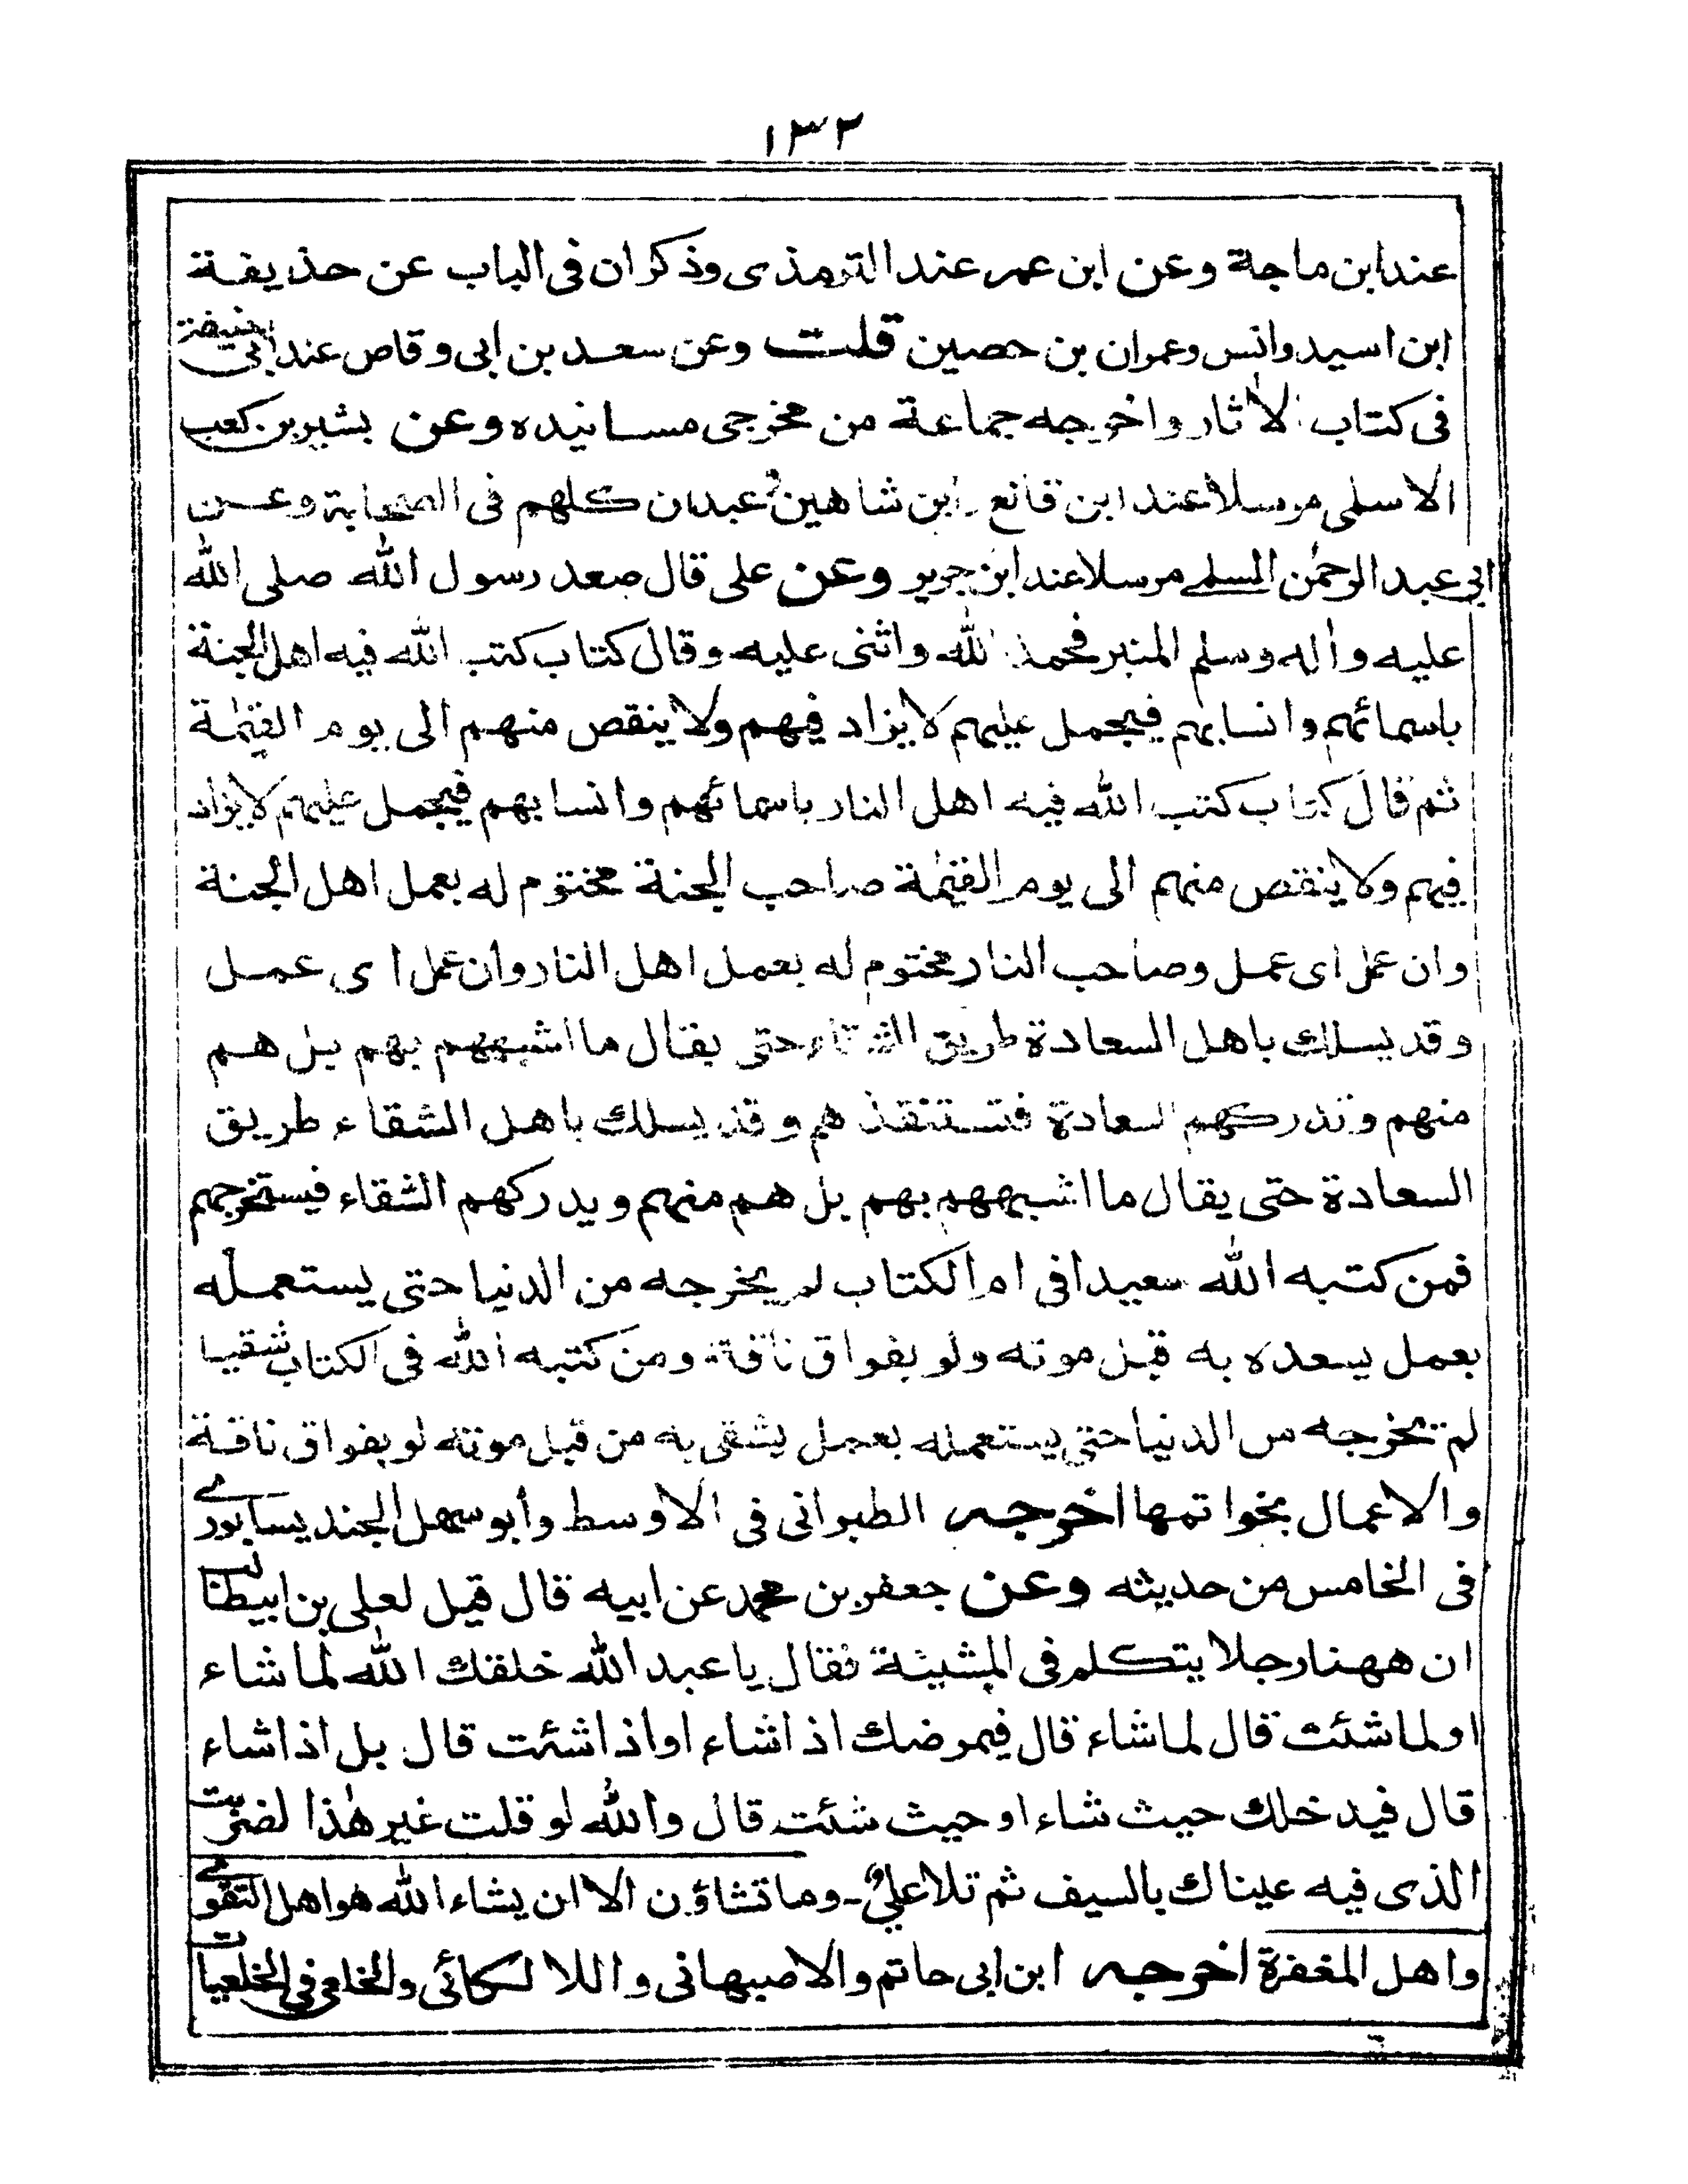 ١٣٢
عند ابن ماجة وعن ابن عمر عند الترمذى وذكر ان فى الباب عن حذيفة
ابن اسيد وانس وعمران بن حصين قلت وعن سعد بن ابى وقاص عند ابى حنيفة
فى كتاب الاٰثار واخرجه جماعة من مخرجى مسانيده وعن بشير بن كعب
الاسلمى مرسلا عند ابن قانع وابن شاهين وعبدان كلهم فى الصحابة وعن
ابى عبد الرحمٰن المسلمے مرسلا عند ابن جرير وعن على قال صعد رسول الله صلى الله
عليه واٰله وسلم المنبر فحمد الله واثنى عليه وقال كتاب كتب الله فيه اهل الجنة
باسمائهم وانسابهم فيجمل عليهم لا يزاد فيهم ولا ينقص منهم الى يوم القيٰمة
ثم قال كتاب كتب الله فيه اهل النار باسمائهم وانسابهم فيجمل عليهم لا يزاد
فيهم ولا ينقص منهم الى يوم القيٰمة صاحب الجنة مختوم له بعمل اهل الجنة
وان عمل اى عمل وصاحب النار مختوم له بعمل اهل النار وان عمل اى عمل
وقد يسلك باهل السعادة طريق الشقاء حتى يقال ما اشبههم بهم بل هم
منهم وتدركهم السعادة فتستنقذهم وقد يسلك باهل الشقاء طريق
السعادة حتى يقال ما اشبههم بهم بل هم منهم ويدركهم الشقاء فيستخرجهم
فمن كتبه الله سعيدا فى ام الكتاب لم يخرجه من الدنيا حتى يستعمله
بعمل يسعده به قبل موته ولو بفواق ناقة ومن كتبه الله فى الكتاب شقيا
لم يخرجه من الدنيا حتى يستعمله بعمل يشقى به من قبل موته لو بفواق ناقة
والاعمال بخواتمها اخرجه الطبرانى فى الاوسط وأبو سهل الجنديسابورے
فى الخامس من حديثه وعن جعفر بن محمد عن ابيه قال قيل لعلى بن ابيطالب
ان ههنا رجلا يتكلم فى المشيئة فقال يا عبد الله خلقك الله لما شاء
او لما شئت قال لما شاء قال فيمرضك اذا شاء او اذا شئت قال بل اذا شاء
قال فيدخلك حيث شاء او حيث شئت قال والله لو قلت غير هٰذا لضربت
الذى فيه عيناك بالسيف ثم تلا على وما تشاؤن الا ان يشاء الله هو اهل التقوے
واهل المغفرة اخرجه ابن ابى حاتم والاصبهانى واللالكائى والخلعى فى الخلعيات